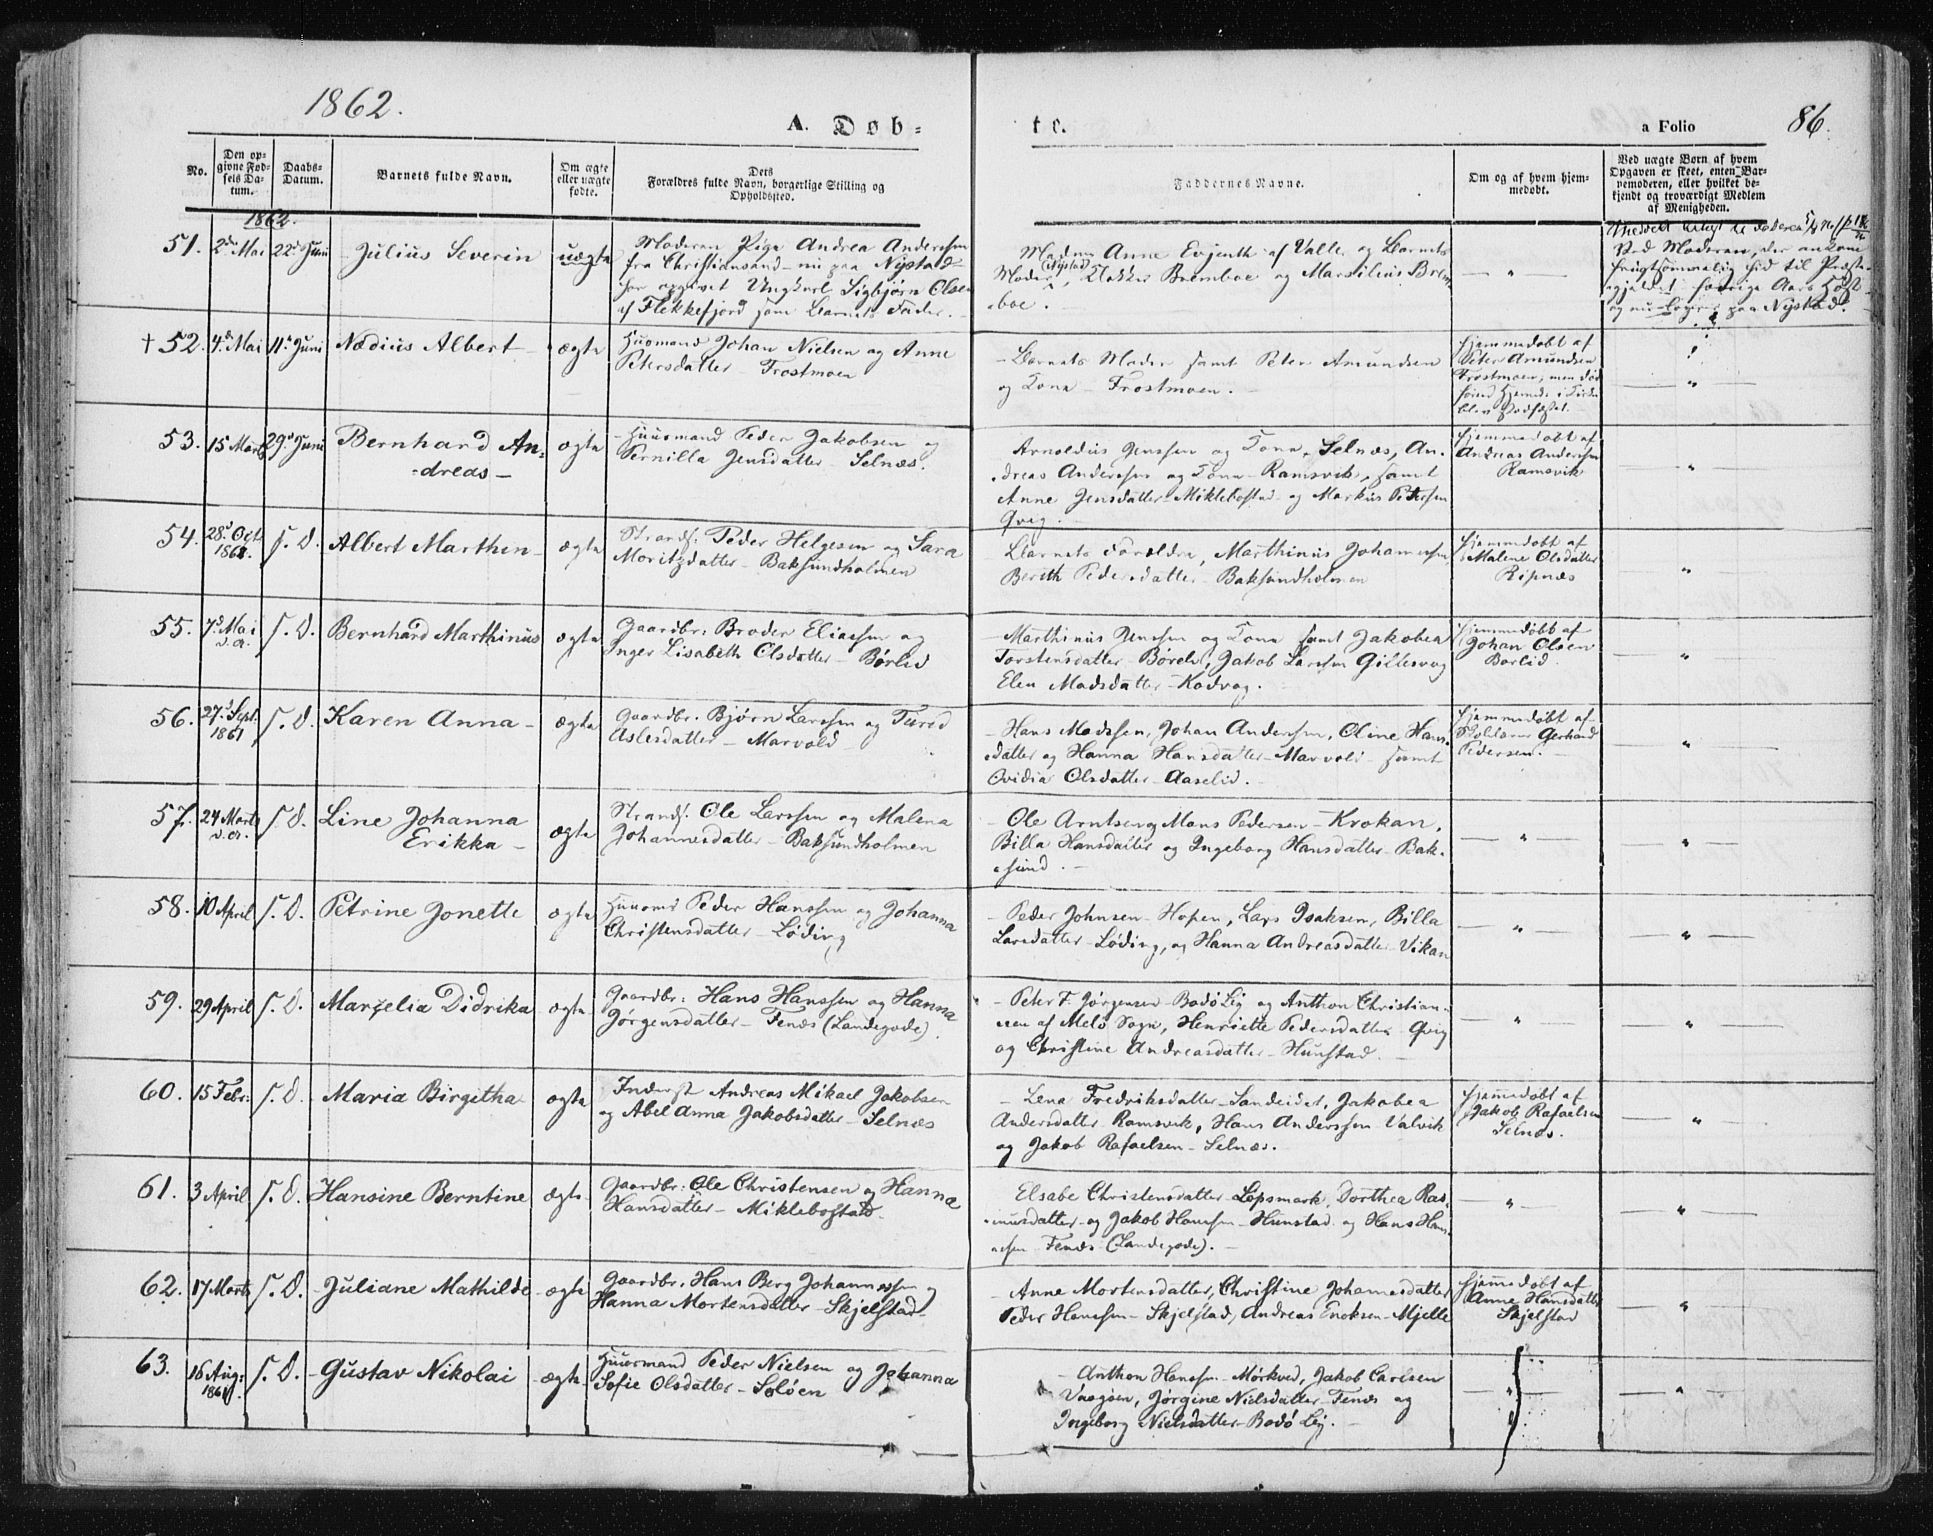 1862.
A. Døb-
te.
a Folio
86.
No.
Den opgivne Fødsels Datum.
Daabs-Datum.
Barnets fulde Navn.
Om ægte eller uægte fødte.
Dets Forældres fulde Navn, borgerlige Stilling og Opholdssted.
Faddernes Navne.
Om og af hvem hjemmedøbt.
Ved uægte Børn af hvem Opgaven er skeet, enten Barnemoderen, eller hvilket bekjendt og troværdigt Medlem af Menigheden.
1862.
51. 2d Mai 22d Juni Julius Severin uægte
Moderen Pige Andrea Anderssen
fra Christiansand - nu paa Nystad -
har opgivet Ungkarl Sigbjørn Olsen
af Flekkefjord som Barnets Fader.
Madm Anne Evjenth af Valle og Barnets
Moder (Nystad), Klokker Bremboe og Marsilius Brem-
boe.
"
Ved Moderen, der ankom
frugtsommelig hid til Præste-
gjeldet forrige Aars Høst
og nu paa Nystad.
† 52. 4d Mai 11te Juni Nædius Albert - ægte
Huusmand Johan Nielsen og Anne
Petersdatter - Frostmoen
- Barnets Moder samt Peter Amundsen
og Kone - Frostmoen. -
Hjemmedøbt af
Peter Amundsen
Frostmoen, men død
"
53. 15 Marts 29d Juni Bernhard An-
dreas - ægte
Huusmand Peder Jakobsen og
Pernilla Jensdatter - Selnæs.
Arnoldus Jenssen og Kone, Selnæs, An-
dreas Anderssen og Kone - Ramsvik, samt
Anne Jensdatter - Miklebostad og Markus Pedersen
Qvig.
Hjemmedøbt af
Andreas Anderssen
Ramsvik
"
54. 28d Oct. 1861. s. d. Albert Marthin - ægte
Strands. Peder Helgesen og Sara
Moritzdatter - Baksundholmen
- Barnets Forældre, Marthinus Johannessen,
Berith Pedersdatter - Baksundholmen
Hjemmedøbt af
Malene Olsdatter
Ripnæs
"
55. 7d Mai d. A. s. d. Bernhard Marthinus ægte
Gaardbr: Broder Eliassen og
Inger Lisabeth Olsdatter - Børlid
- Marthinus Jenssen og Kone samt Jakobea
Torstensdatter - Børeli, Jakob Larssen Gillesvag
Elen Madsdatter - Kodvag.
Hjemmedøbt af
Johan Olsen
Børlid.
"
56. 27d Sept. 1861 s. d. Karen Anna - ægte
Gaardbr. Bjørn Larssen og Turid
Aslesdatter - Marvold
- Hans Madssen, Johan Anderssen, Oline Hans-
datter og Hanna Hansdatter - Marvold samt
Ovidia Olsdatter - Aaselid.
Hjemmedøbt af
Skolelærer Gerhard
Pedersen. -
"
57. 24 Marts d. A. s. d. Line Johanna
Erikka - ægte
Strands. Ole Larssen og Malena
Johannesdatter - Baksundholmen
- Ole Arntsen og Mons Pedersen - Krokan,
Billa Hansdatter og Ingeborg Hansdatter - Bak-
sund. -
"
"
58. 10 April s. d. Petrine Jonette ægte
Huusmd Peder Hanssen og Johanna
Christensdatter - Løding
- Peder Johnsen - Hopen, Lars Isaksen, Billa
Larsdatter - Løding, og Hanna Andreasdatter - Vikan
"
"
59. 29 April s. d. Marselia Didrika ægte
Gaardbr: Hans Hanssen og Hanna
Jørgensdatter - Fenæs (Landegode).
- Peter F. Jørgensen - Bodø Lig og Anthon Christian-
sen af Melø Sogn, Henriette Pedersdatter - Qvig
og Christine Andreasdatter - Hunstad.
"
"
60. 15 Febr: s. d. Maria Birgitha ægte
Inderst Andreas Mikael Jakobsen
og Abel Anna Jakobsdatter - Selnæs
- Lena Fredriksdatter - Sandeidet, Jakobea
Andersdatter Ramsvik, Hans Anderssen Valvik
og Jakob Rafaelsen - Selnæs.
Hjemmedøbt af
Jakob Rafaelsen
Selnæs.
"
61. 3 April s. d. Hansine Berntine ægte
Gaardbr: Ole Christensen og Hanna
Hansdatter - Miklebostad
Elsabe Christensdatter - Løpsmark, Dorthea Ras-
musdatter og Jakob Hanssen - Hunstad og Hans Hans-
sen Fenæs (Landegode). -
"
"
62. 17 Marts s. d. Juliane Mathilde ægte
Gaardbr. Hans Berg Johannessen og
Hanna Mortensdatter - Skjelstad
- Anne Mortensdatter, Christine Johannesdatter
Peder Hanssen - Skjelstad, Andreas Enoksen - Mjelle
Hjemmedøbt af
Anne Hansdatter
Skjelstad
"
63. 16 Aug: 1861 s. d. Gustav Nikolai - ægte
Huusmand Peder Nielsen og Johanna
Sofie Olsdatter - Soløen
- Anthon Hanssen - Mørkved, Jakob Carlsen
Vaagøen, Jørgine Nielsdatter - Fenæs og
Ingeborg Nielsdatter - Bodø Lig. -
"
"